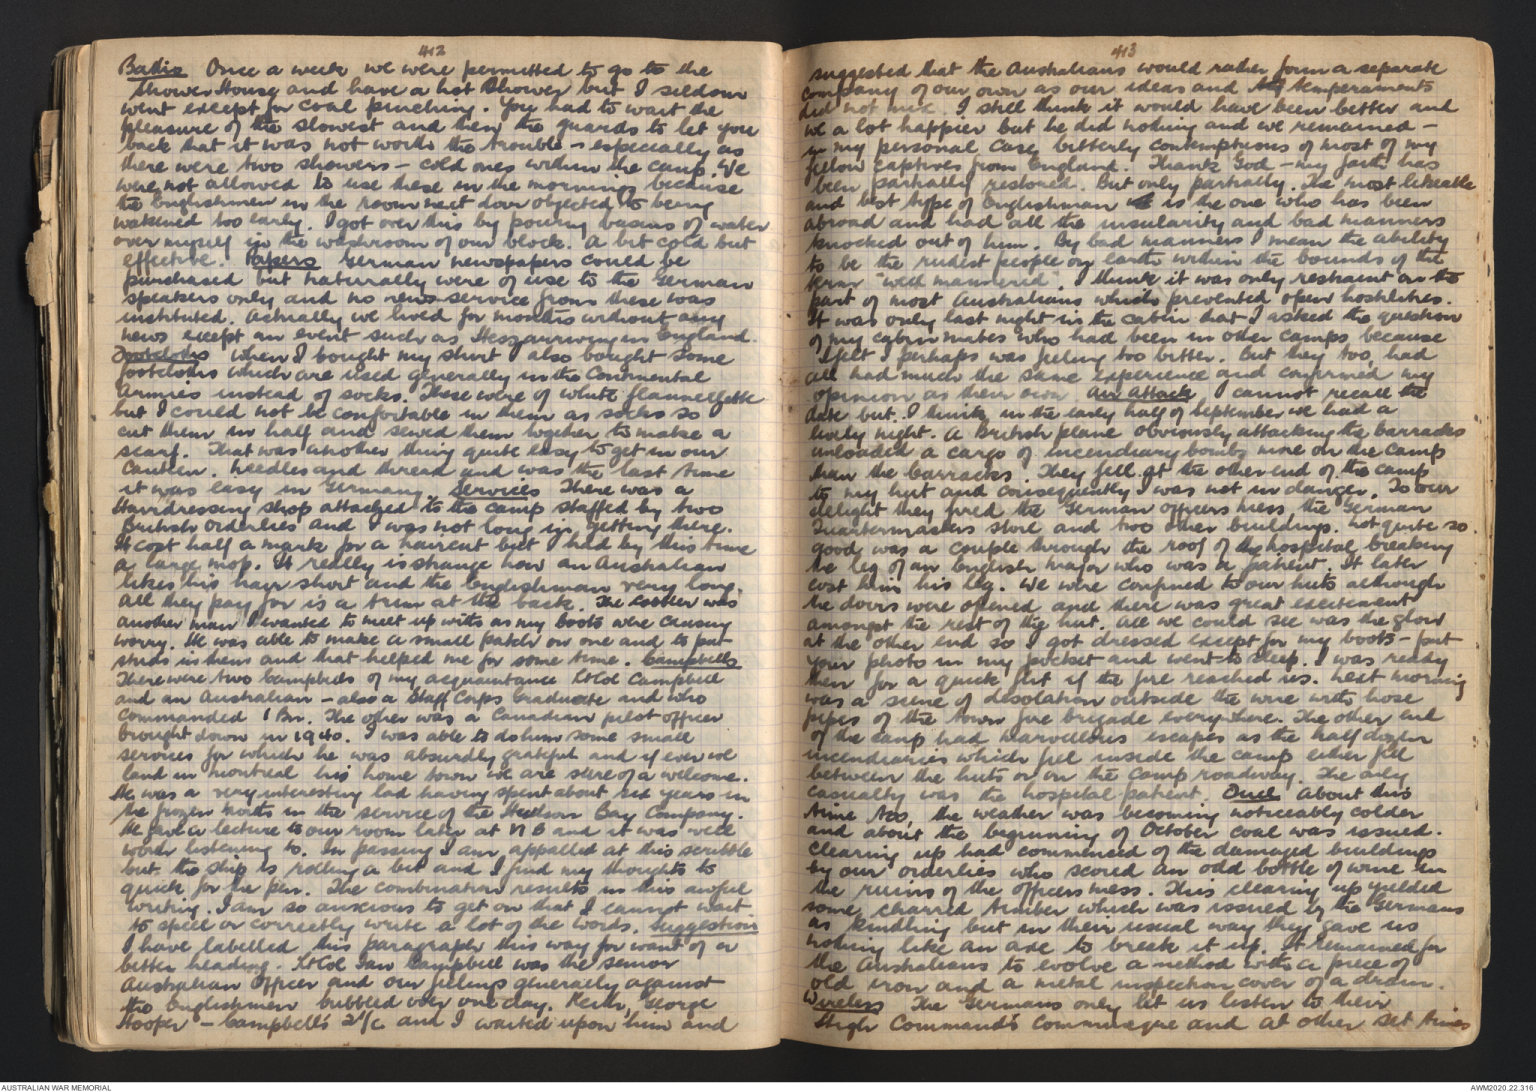 412
Baths Once a week we were permitted to go to the
Shower House and have a hot shower but I seldom
went except for coal pinching. You had to wait the
pleasure of the slowest and then the guards to let you
back that it was not worth the trouble - especially as
there were two showers - cold ones within the camp. We
were not allowed to use these in the mornings because
the Englishmen in the room next door objected to being
wakened too early. I got over this by pouring basins of water
over myself in the washroom of our block. A bit cold but
effective. Papers German newspapers could be
purchased but naturally were of use to the German
speakers only and no news service from these was
instituted. Actually we lived for months without any
news except an event such as Hess arriving in England.
Footcloths When I bought my shirt I also bought some
footcloths which are used generally in the Continental
Armies instead of socks. These were of white flannellette
but I could not be comfortable in them as socks so I
cut them in half and sewed them together to make a
scarf. That was another thing quite easy to get in our
canteen. Needles and thread and was the last time
it was easy in Germany. Services There was a
Hairdressing shop attached to the camp staffed by two
British orderlies and I was not long in getting there.
It cost half a mark for a haircut but I had by this time
a large mop. It really is strange how an Australian
likes his hair short and the Englishman very long.
All they pay for is a trim at the back. The cobbler was
another man I wanted to meet up with as my boots were causing
worry. He was able to make a small patch on one and to put
studs in them and that helped me for some time. Campbells
There were two Campbells of my acquaintance Lt Col Campbell
and an Australian - also a Staff Corps Graduate and who
commanded 1 Bn. The other was a Canadian pilot officer
brought down in 1940. I was able to do him some small
services for which he was absurdly grateful and if ever we
land in Montreal his home town we are sure of a welcome.
He was a very interesting lad having spent about six years in
the frozen North in the service of the Hudson Bay Company.
He gave a lecture to our room later at VI B and it was well
worth listening to. In passing I am appalled at this scribble
but the ship is rolling a bit and I find my thoughts to
quick for the pen. The combination results in this awful
writing. I am so anxious to get on that I cannot wait
to spell or correctly write a lot of the words. Suggestion
I have labelled this paragraph this way for want of a
better heading. Lt Col Ian Campbell was the senior
Australian Officer and our feelings generally against
the Englishmen bubbled over one day. Keith, George
Hooper - Campbell's 2i/c and I waited upon him and
413
suggested that the Australians would rather form a separate
company of our own as our ideas and temperaments
did not mix. I still think it would have been better and
we a lot happier but he did nothing and we remained -
in my personal case bitterly contemptuous of most of my
fellow captives from England. Thank God - my faith has
been partially restored. But only partially. The most likeable
and best type of Englishman is the one who has been
abroad and had all the insularity and bad manners
knocked out of him. By bad manners I mean the ability
to be the rudest people on earth within the bounds of the
term "well mannered". I think it was only restraint on the
part of most Australians which prevented open hostilities.
It was only last night in the cabin that I asked the question
of my cabin mates who had been in other camps because
I felt I perhaps was feeling too bitter. But they too, had
all had much the same experience and confirmed my
opinion as their own An Attack I cannot recall the
date but I think in the early half of September we had a
lively night. A British plane obviously attacking the barracks
unloaded a cargo of incendiary bombs more on the camp
than the barracks. They fell at the other end of the camp
to my hut and consequently I was not in danger. To our
delight they fired the German officers mess, the German
Quartermasters store and two other buildings. Not quite so
good was a couple through the roof of the hospital breaking
the leg of an English major who was a patient. It later
cost him his leg. We were confined to our huts although
the doors were opened and there was great excitement
amongst the rest of the hut. All we could see was the glow
at the other end so I got dressed except for my boots - put
your photo in my pocket and went to sleep. I was ready
then for a quick flit if the fire reached us. Next morning
was a scene of desolation outside the wire with hose
pipes of the town fire brigade everywhere. The other end
of the camp had marvellous escapes as the half dozen
incendiaries which fell inside the camp either fell
between the huts or on the camp roadway. The only
casualty was the hospital patient. Fuel About this
time too, the weather was becoming noticeably colder
and about the beginning of October coal was issued.
Clearing up had commenced of the damaged buildings
by our orderlies who scored an odd bottle of wine in
the ruins of the officers mess. This clearing up yielded
some charred timber which was issued by the Germans
as kindling but in their usual way they gave us
nothing like an axe to break it up. It remained for
the Australians to evolve a method with a piece of
old iron and a metal inspection cover of a drain.
Wireless The Germans only let us listen to their
High Command's communique and at other set times
AUSTRALIAN WAR MEMORIAL
AWM2020.22.316